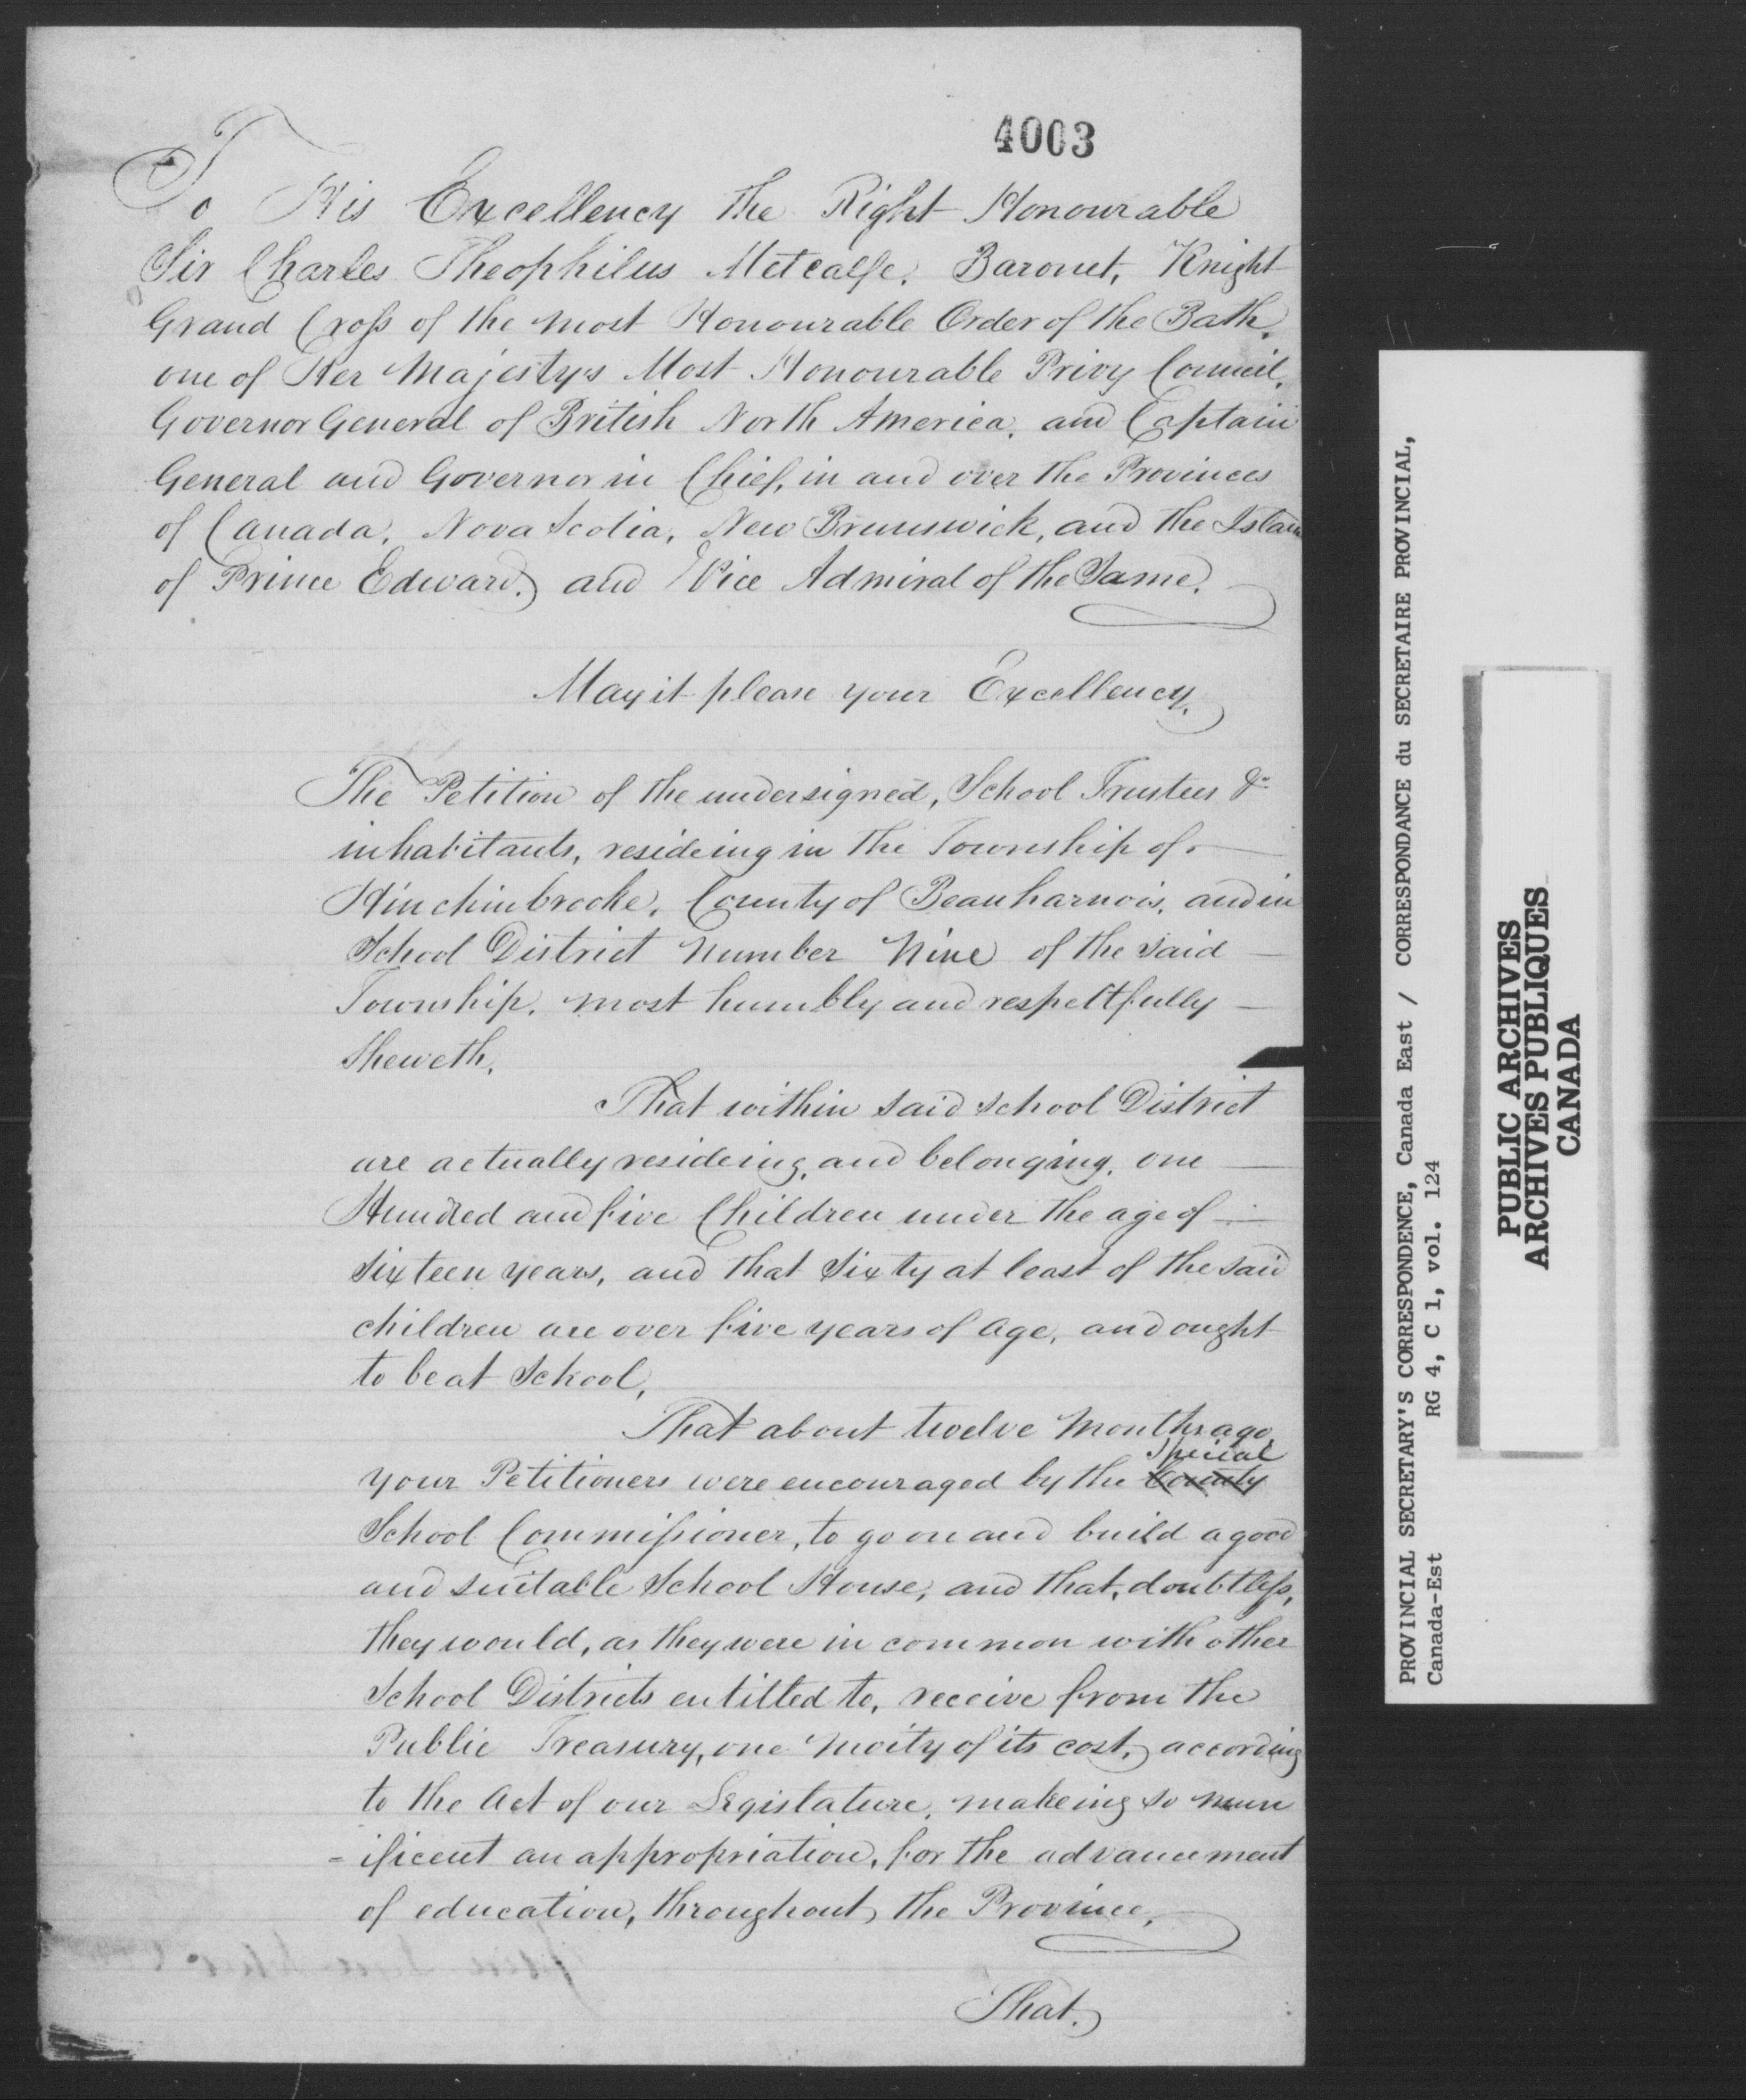 4003
To His Excellency the Right Honourable
Sir Charles Theophilus Metcalfe, Baronet, Knight
Grand Cross of the most Honourable Order of the Bath,
one of Her Majestys Most Honourable Privy Council,
Governor General of British North America, and Captain
General and Governor in Chief, in and over the Provinces
of Canada, Nova Scotia, New Brunswick, and the Island
of Prince Edward, and Vice Admiral of the Same.
May it please your Excellency.
The Petition of the undersigned, School Trustees &
inhabitants, resideing in the Township of
Hinchinbrooke, County of Beauharnois, and in
School District Number Nine of the said
Township, most humbly and respectfully
Sheweth,
That within said school District
are actually resideing, and belonging, one
Hundred and five Children under the age of
sixteen years, and that Sixty at least of the said
children are over five years of age, and ought
to be at School,
That about twelve Months ago,
Special
your Petitioners were encouraged by the County
School Commissioner, to go on and build a good
and suitable School House, and that, doubtless,
they would, as they were in common with other
School Districts entitled to, receive from the
Public Treasury, one Moity of its cost, according
to the Act of our Legislature, makeing so mun
=ificent an appropriation, for the advancement
of education, throughout the Province,
That
PROVINCIAL SECRETARY'S CORRESPONDENCE, Canada East / CORRESPONDANCE du SECRETAIRE PROVINCIAL,
Canada-Est RG 4, C 1, vol. 124
PUBLIC ARCHIVES
ARCHIVES PUBLIQUES
CANADA